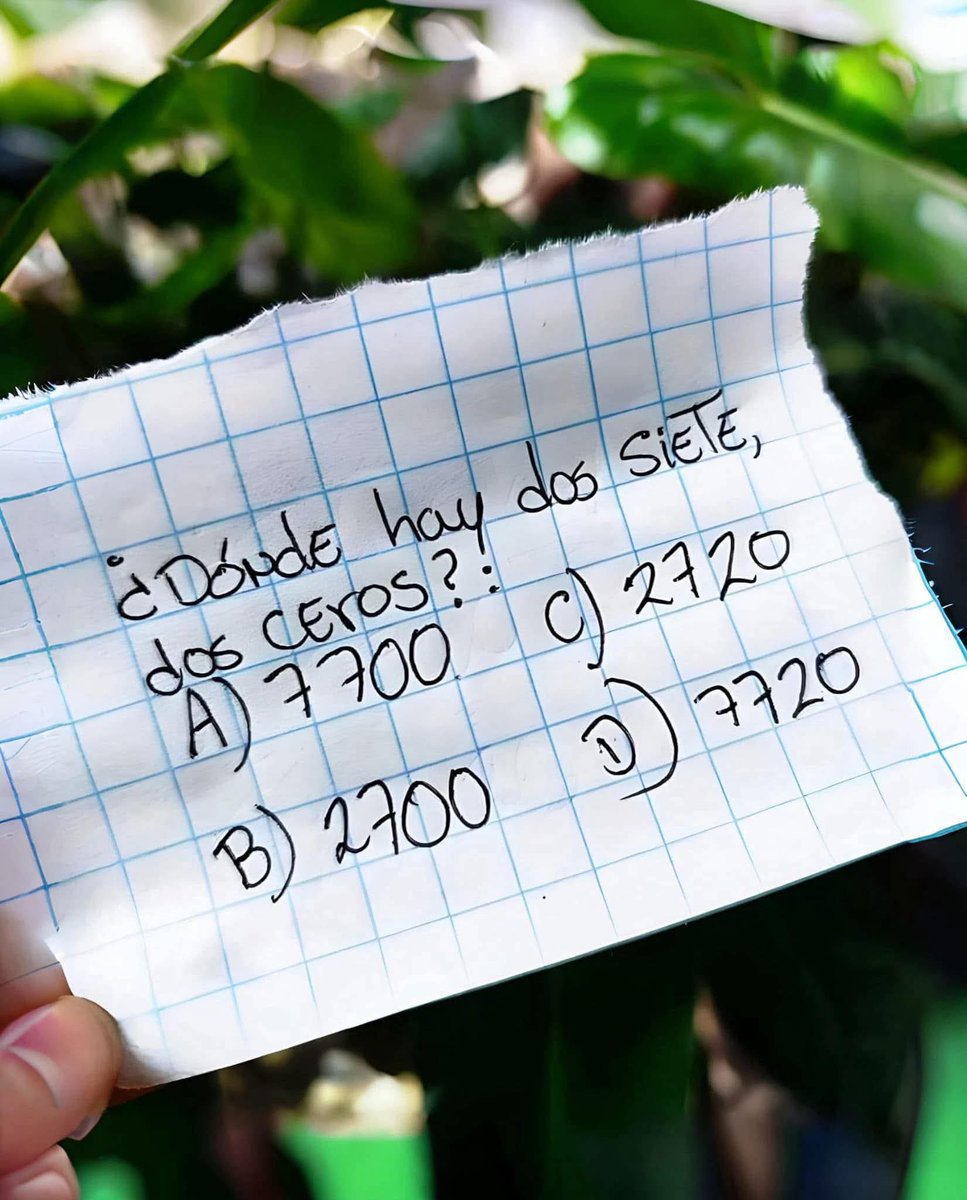 ¿DÓNDE hay dos SiETE,
dos CEROS?:
A) 7700 C) 2720
B) 2700 D) 7720